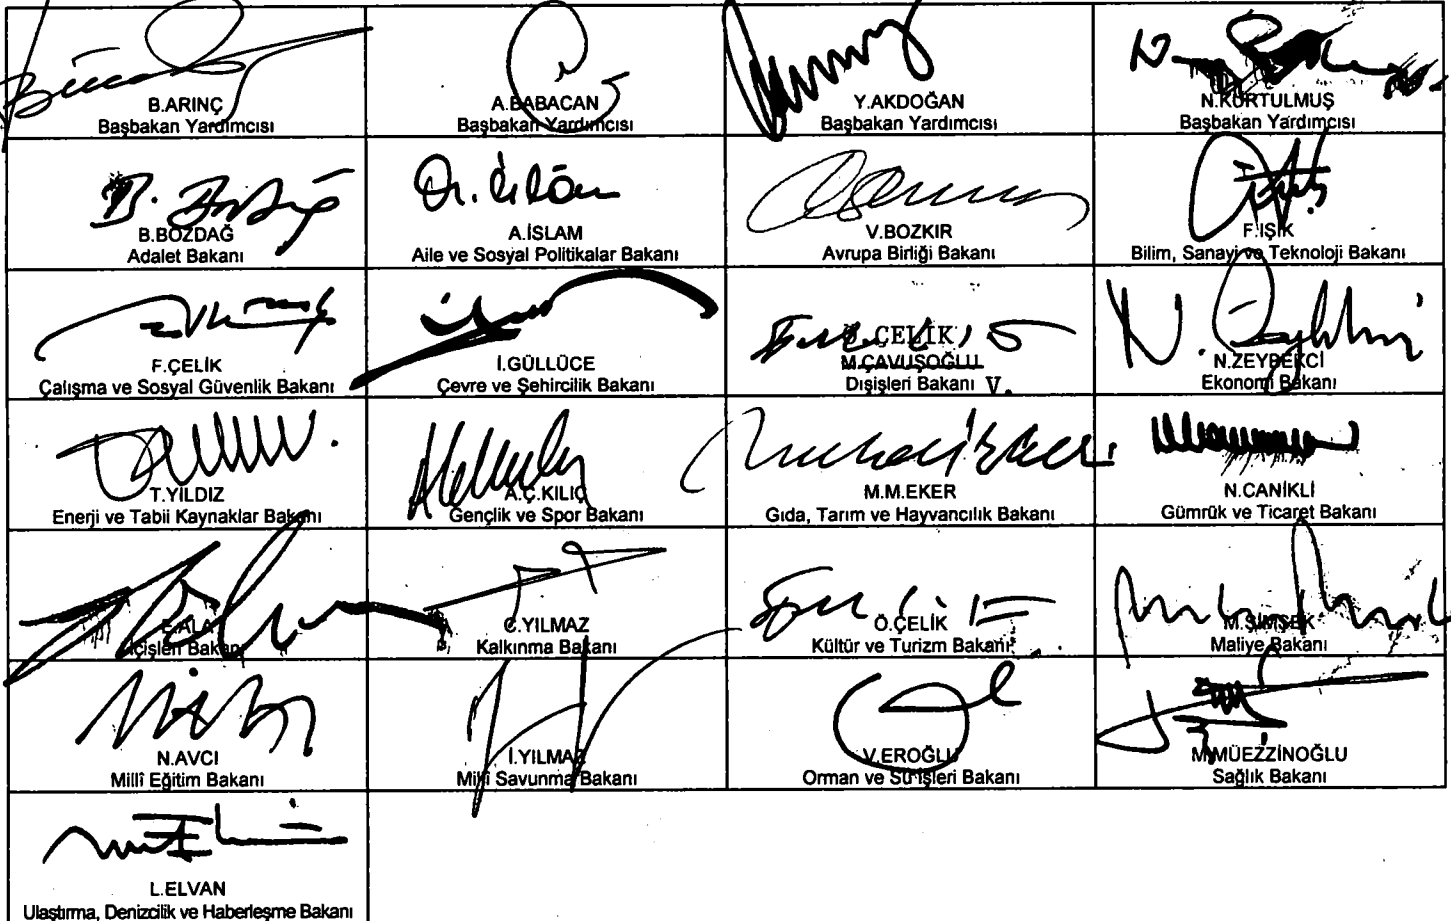 B.ARINÇ
Başbakan Yardımcısı
A.BABACAN
Başbakan Yardımcısı
Y.AKDOĞAN
Başbakan Yardımcısı
N.KURTULMUŞ
Başbakan Yardımcısı
B.BOZDAĞ
Adalet Bakanı
A.İSLAM
Aile ve Sosyal Politikalar Bakanı
V.BOZKIR
Avrupa Birliği Bakanı
F.IŞIK
Bilim, Sanayi ve Teknoloji Bakanı
F.ÇELİK
Çalışma ve Sosyal Güvenlik Bakanı
İ.GÜLLÜCE
Çevre ve Şehircilik Bakanı
ÇELİK
M.ÇAVUŞOĞLU
Dışişleri Bakanı V.
N.ZEYBEKCİ
Ekonomi Bakanı
T.YILDIZ
Enerji ve Tabii Kaynaklar Bakanı
A.Ç.KILIÇ
Gençlik ve Spor Bakanı
M.M.EKER
Gıda, Tarım ve Hayvancılık Bakanı
N.CANİKLİ
Gümrük ve Ticaret Bakanı
E.ALA
İçişleri Bakanı
C.YILMAZ
Kalkınma Bakanı
Ö.ÇELİK
Kültür ve Turizm Bakanı
M.ŞİMŞEK
Maliye Bakanı
N.AVCI
Millî Eğitim Bakanı
İ.YILMAZ
Millî Savunma Bakanı
V.EROĞLU
Orman ve Su İşleri Bakanı
M.MÜEZZİNOĞLU
Sağlık Bakanı
L.ELVAN
Ulaştırma, Denizcilik ve Haberleşme Bakanı